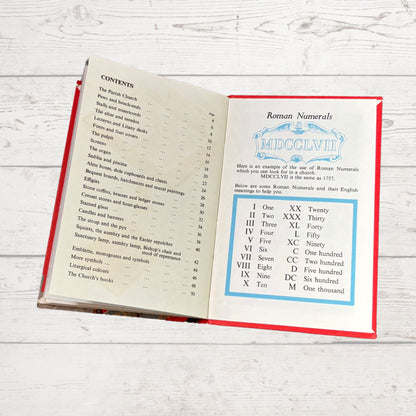 CONTENTS
Page
The Parish Church
Pews and bench-ends
Stalls and misericords
The altar and reredos
Lecterns and Litany desks
Fonts and font covers
The pulpit
Screens
The organ
Sedilia and piscina
Alms boxes, dole cupboards and chests
Bequest boards, hatchments and mural paintings
Effigies
Stone coffins, brasses and ledger stones
Cresset stones and hour-glasses
Stained glass
Candles and banners
The stoup and the pyx
Squints, the aumbry and the Easter sepulchre
Sanctuary lamp, sanctus lamp, Bishop's chair and
stool of repentance
Emblems, monograms and symbols
More symbols
Liturgical colours
The Church's books
4
6
8
10
12
14
16
18
20
22
24
26
28
30
32
34
36
38
40
42
44
46
48
50
Roman Numerals
MDCCLVII
Here is an example of the use of Roman Numerals
which you can look for in a church.
MDCCLVII is the same as 1757.
Below are some Roman Numerals and their English
meanings to help you.
I One XX Twenty
II Two XXX Thirty
III Three XL Forty
IV Four L Fifty
V Five XC Ninety
VI Six C One hundred
VII Seven CC Two hundred
VIII Eight D Five hundred
IX Nine DC Six hundred
X Ten M One thousand